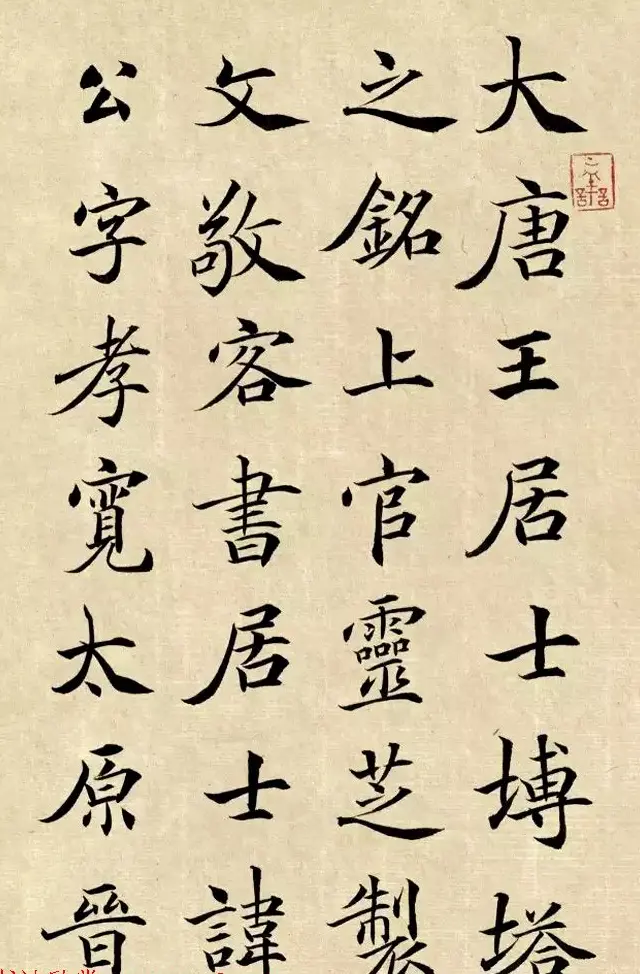 大唐王居士塼塔
之銘上官靈芝製
文敬客書居士諱
公字孝寬太原晉